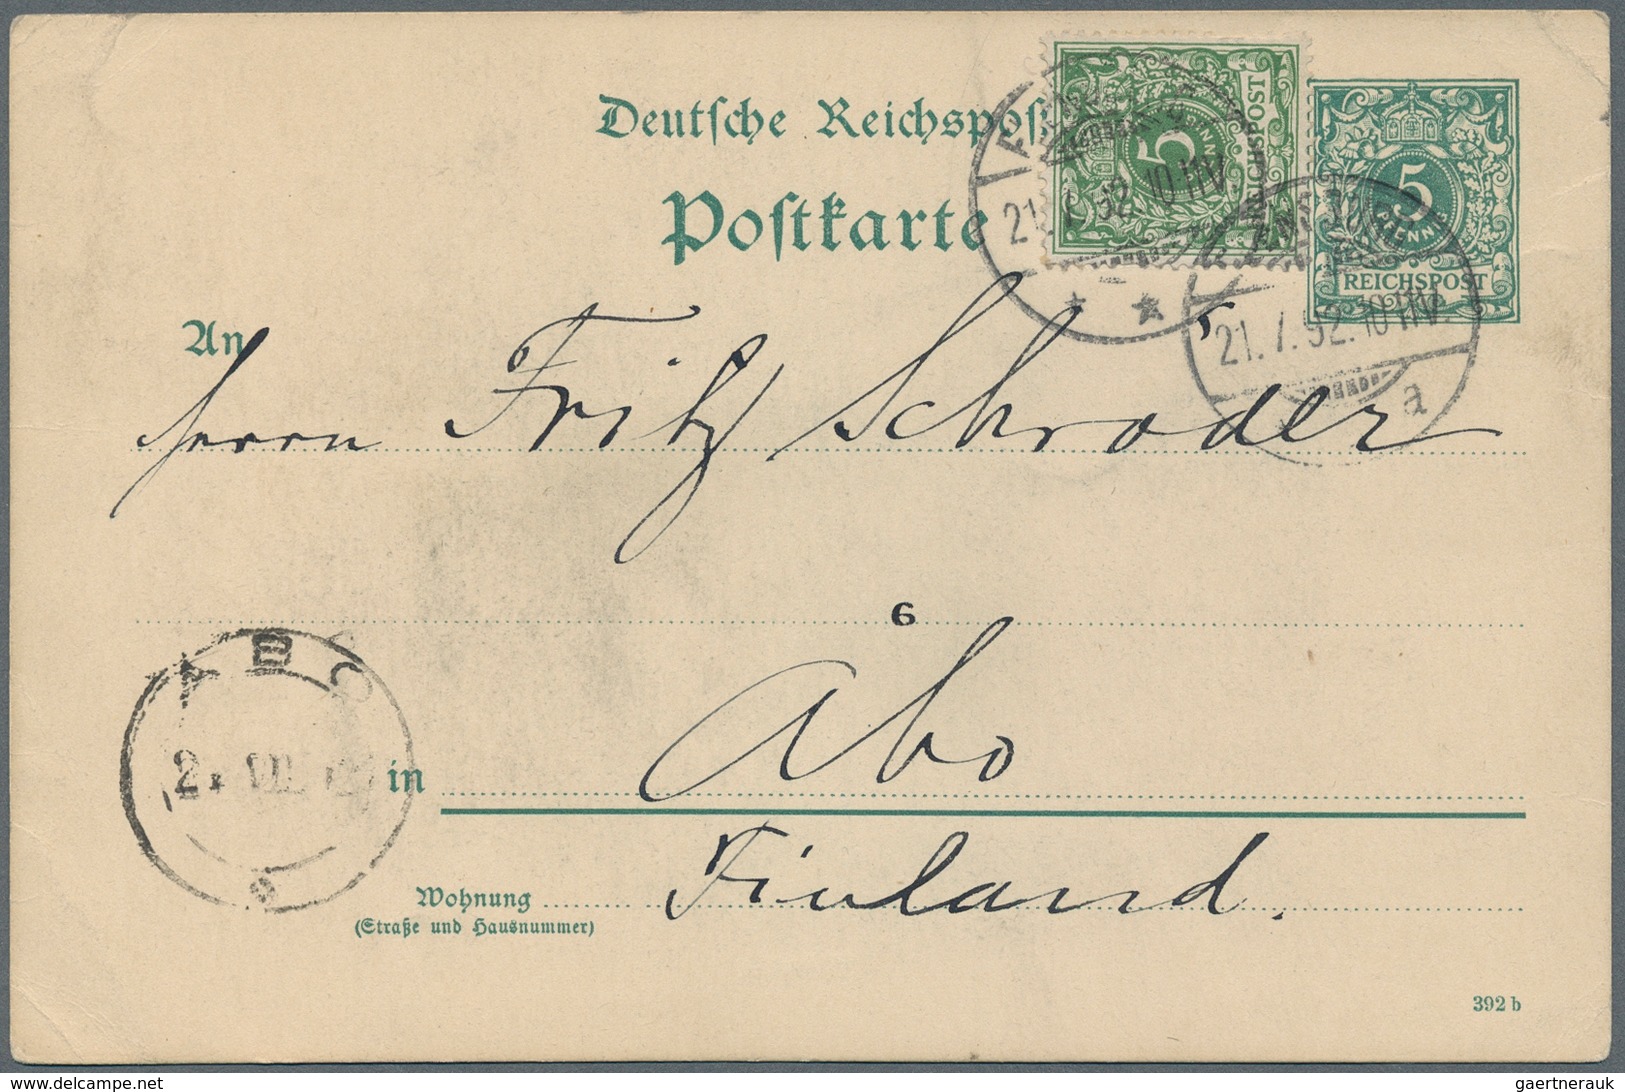 Deutsche Reichspost
Postkarte
5
PFENNIG
REICHSPOST
5
PFENNIG
REICHSPOST
21. 7. 92. 10 11 V.
21. 7. 92. 10 11 V.
a
An
Herrn Fritz Schroder
6
ABO
in Abo
Finland.
Wohnung
(Straße und Hausnummer)
392 b
www.philasearch.com
gaertnerauk